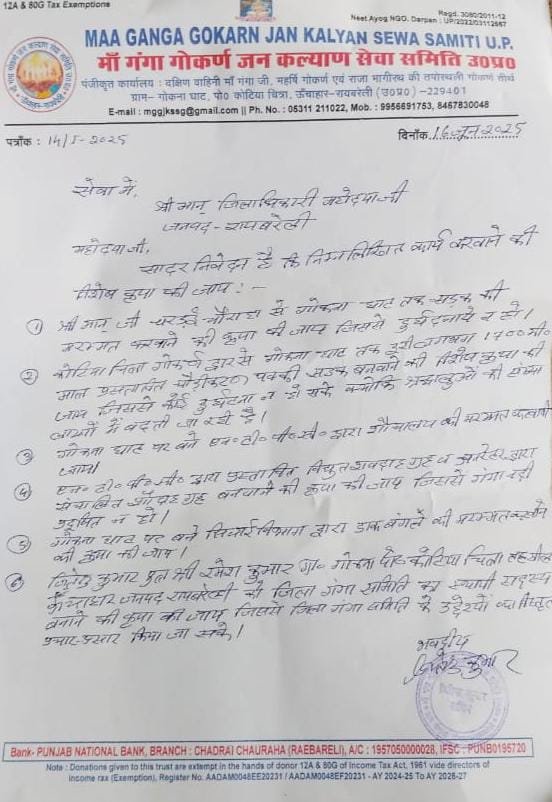 12A & 80G Tax Exemptions
Regd. 3080/2011-12
Neet Ayog NGO. Darpan : UP/2022/03112667
MAA GANGA GOKARN JAN KALYAN SEWA SAMITI U.P.
माँ गंगा गोकर्ण जन कल्याण सेवा समिति उ0प्र0
पंजीकृत कार्यालय : दक्षिण वाहिनी माँ गंगा जी, महर्षि गोकर्ण एवं राजा भागीरथ की तपोस्थली गोकर्ण तीर्थ
ग्राम- गोकना घाट, पो0 कोटिया चित्रा, ऊँचाहार-रायबरेली (उ0प्र0) -229401
E-mail : mggjkssg@gmail.com || Ph. No. : 05311 211022, Mob.: 9956691753, 8467830048
पत्राँक : 14/5-2025
दिनाँक 16 जून 2025
सेवा में,
श्री मान् जिलाधिकारी महोदया जी
जनपद - रायबरेली
महोदया जी,
सादर निवेदन है कि निम्नलिखित कार्य करवाने की
विशेष कृपा की जाय : -
① श्री मान् जी चौराहा से गोकना घाट तक सड़क की
मरम्मत करवाने की कृपा की जाय जिससे दुर्घटनायें न हो।
② कोटिया चित्रा गोकर्ण द्वार से गोकना घाट तक दूरी लगभग 1700 मी०
मार्ग प्रस्तावित चौड़ीकरण पक्की सड़क बनवाने की विशेष कृपा की
जाय जिससे कोई दुर्घटना न हो सके क्योंकि श्रद्धालुओं की संख्या
लाखों में बढ़ती जा रही है।
③ गोकना घाट पर बने एन० टी० पी० सी० द्वारा शौचालय की मरम्मत करवायी
जाय।
④ एन० टी० पी० सी० द्वारा प्रस्तावित विद्युत शवदाह गृह व जनरेटर द्वारा
संचालित शवदाह गृह बनवाने की कृपा की जाय जिससे गंगा नदी
प्रदूषित न हो।
⑤ गोकना घाट पर बने सिंचाई विभाग द्वारा डाक बंगले की मरम्मत करवाने
की कृपा की जाय।
⑥ जितेन्द्र कुमार पुत्र श्री रमेश कुमार ग्रा० गोकना पो० कोटिया चित्रा तहसील
ऊँचाहार जनपद रायबरेली को जिला गंगा समिति का स्थायी सदस्य
बनाने की कृपा की जाय जिससे जिला गंगा समिति के उद्देश्यों का विस्तृत
प्रचार-प्रसार किया जा सके।
भवदीय
जितेन्द्र कुमार
Bank- PUNJAB NATIONAL BANK, BRANCH : CHADRAI CHAURAHA (RAEBARELI), A/C : 1957050000028, IFSC : PUNB0195720
Note : Donations given to this trust are extempt in the hands of donor 12A & 80G of Income Tax Act, 1961 vide directors of
Income rax (Exemption), Register No. AADAM0048EE20231 / AADAM0048EF20231 - AY 2024-25 To AY 2026-27